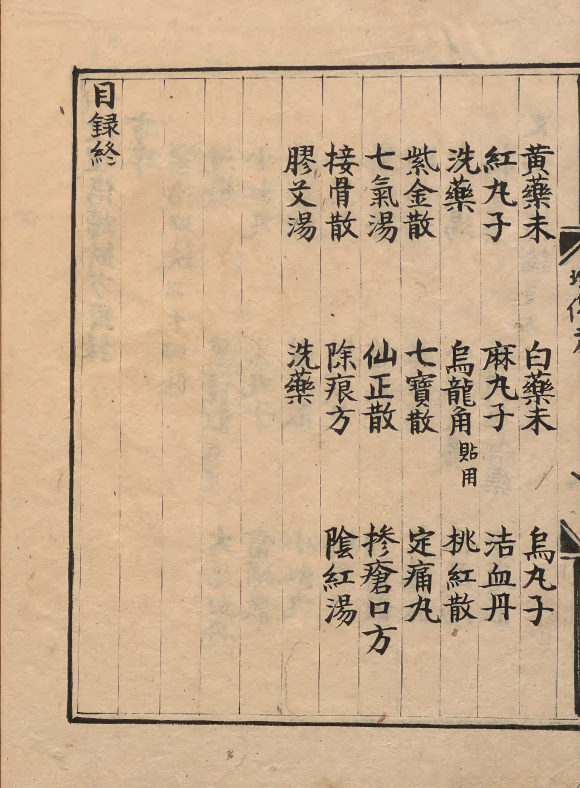 黃藥未 白藥未 烏丸子
紅丸子 麻丸子 活血丹
洗藥 烏龍角貼用 桃紅散
紫金散 七寶散 定痛丸
七氣湯 仙正散 摻瘡口方
接骨散 除痕方 陰紅湯
膠艾湯 洗藥
目録終